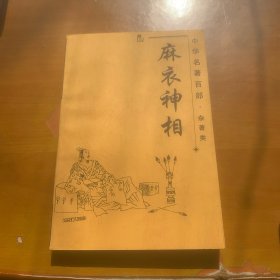 麻衣神相
中华名著百部·杂著类